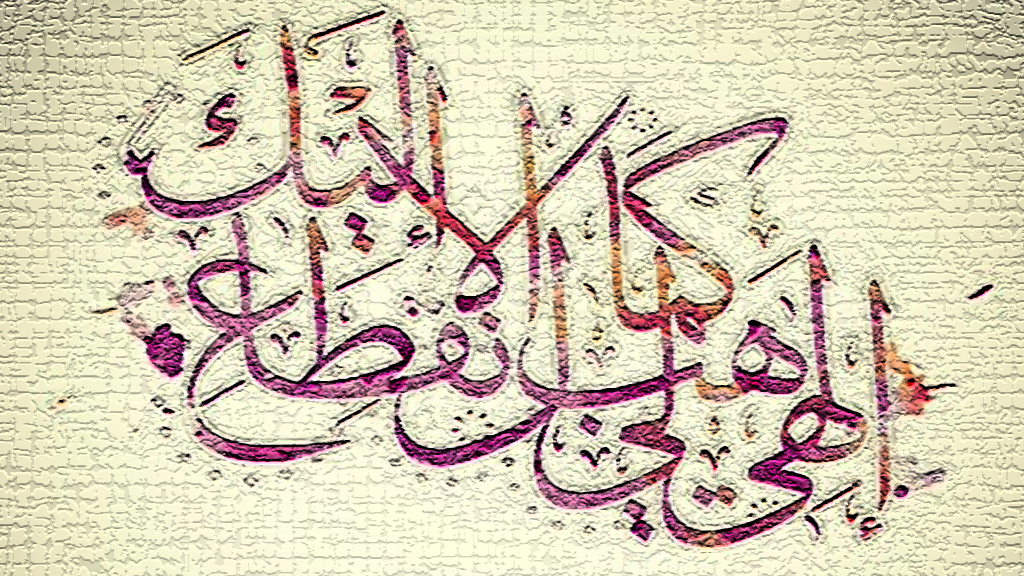 إلهي هب لي كمال الانقطاع إليك